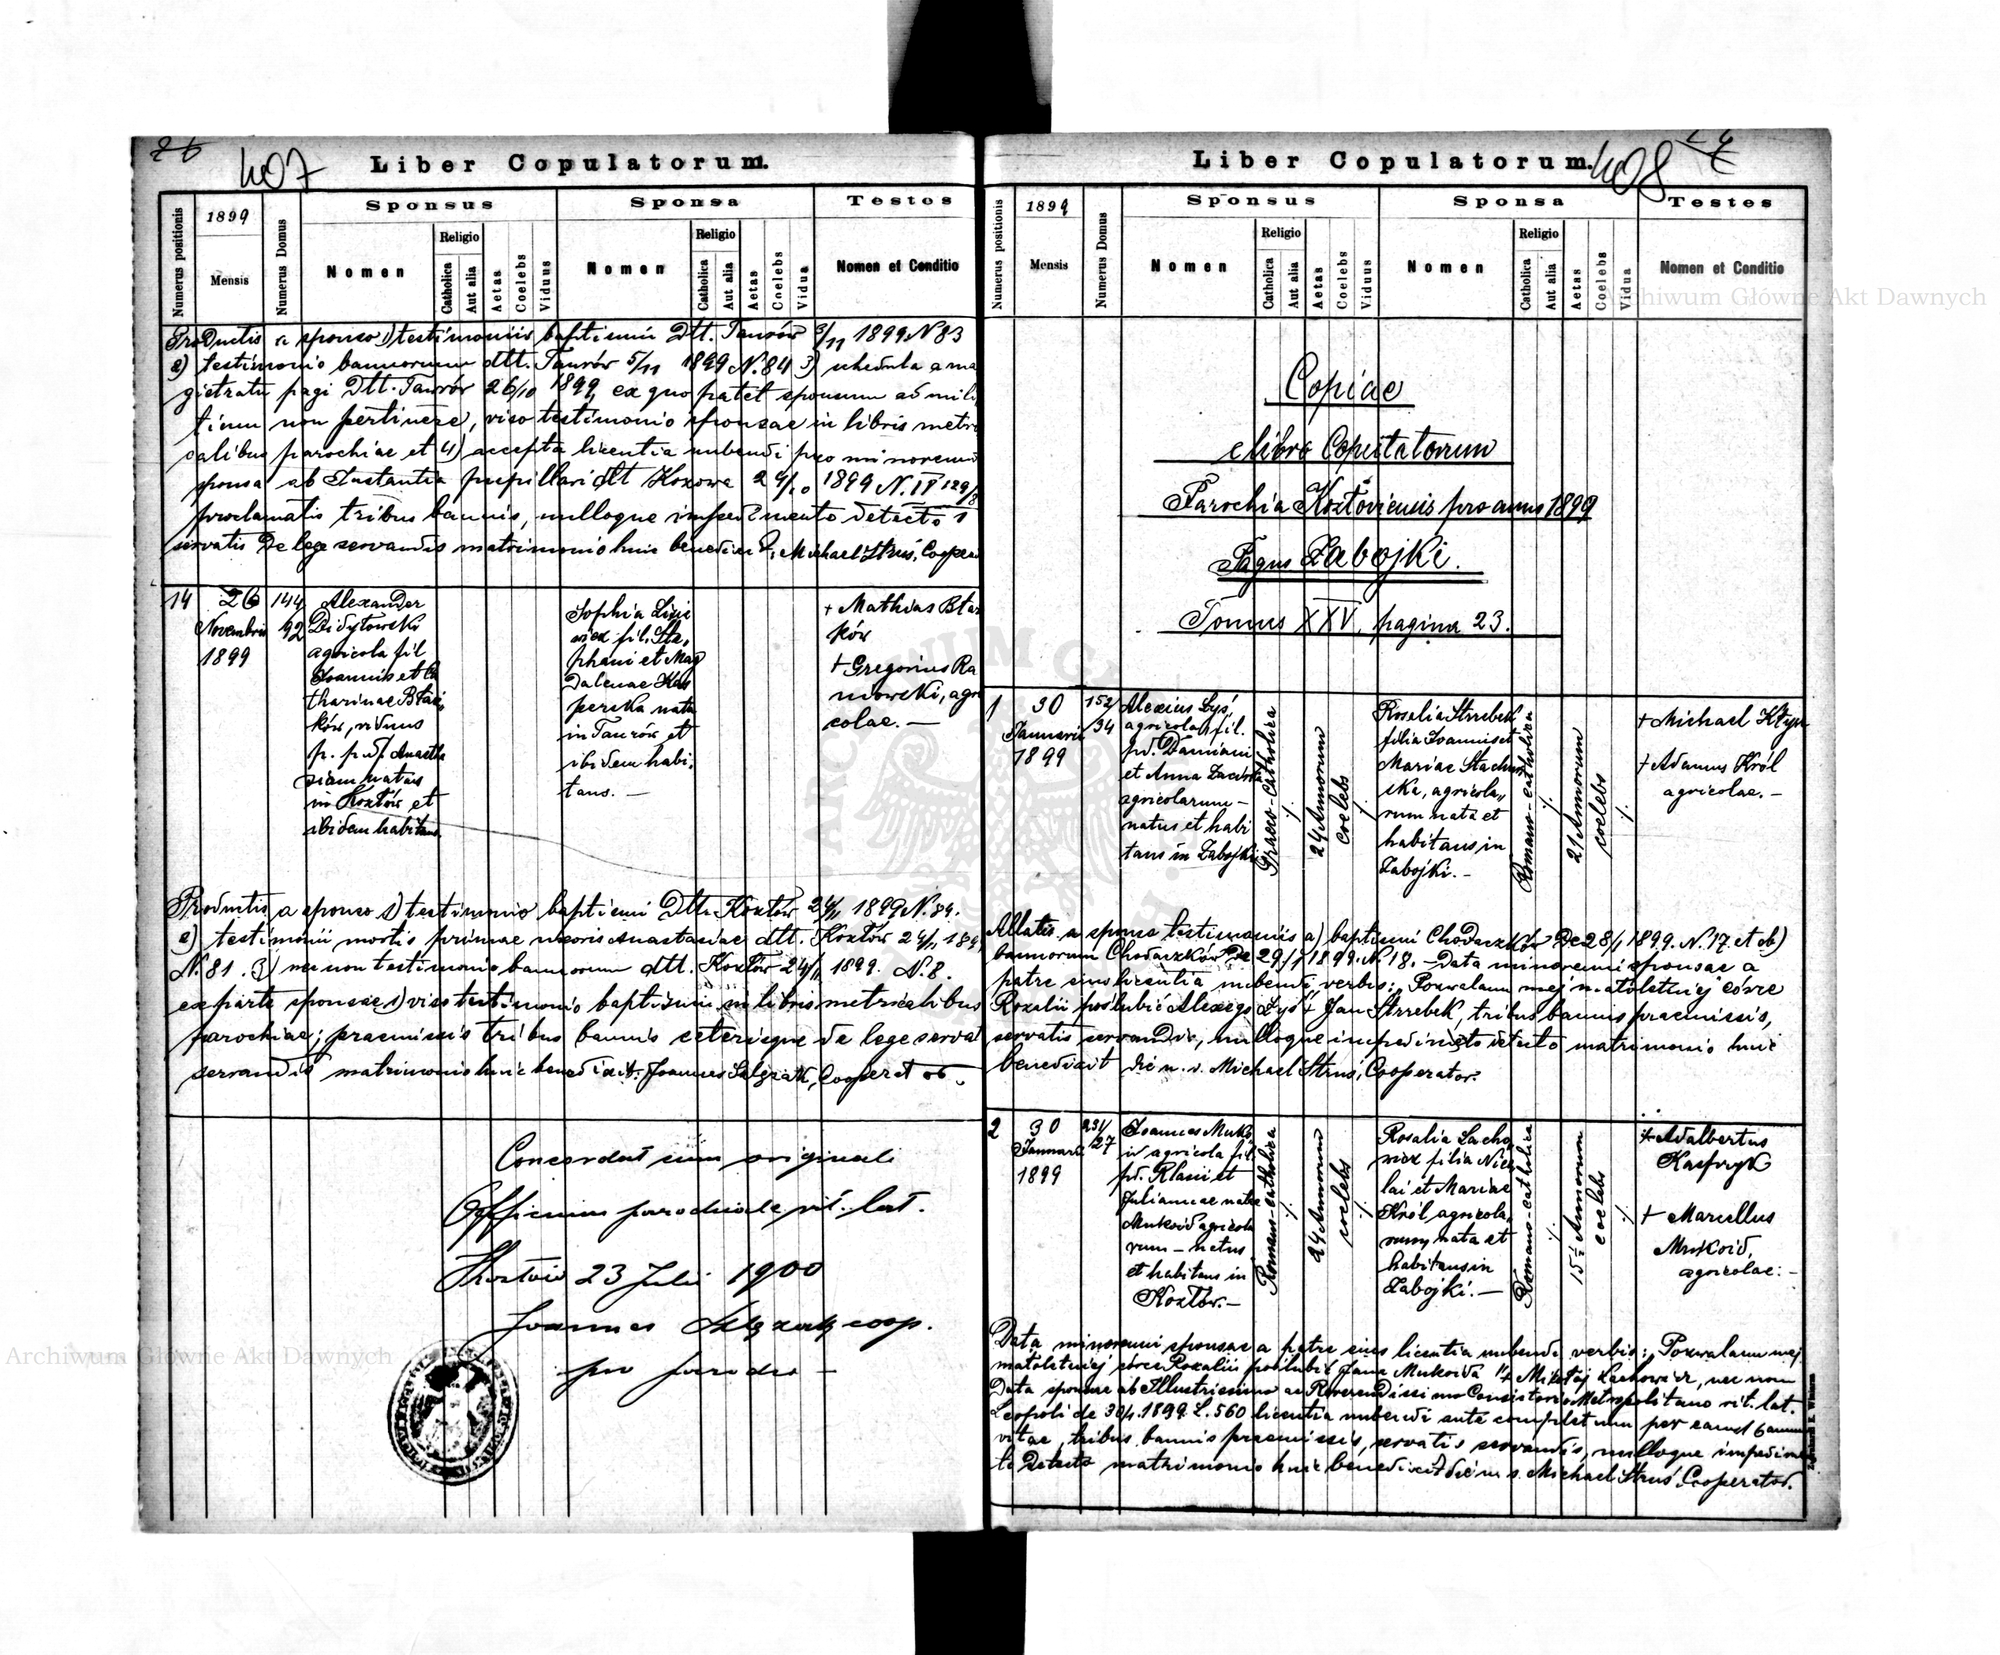 26
407
Liber Copulatorum.
Numerus positionis
1899
Mensis
Numerus Domus
Sponsus
Nomen
Religio
Catholica
Aut alia
Aetas
Coelebs
Viduus
Sponsa
Nomen
Religio
Catholica
Aut alia
Aetas
Coelebs
Vidua
Testes
Nomen et Conditio
Productis a sponso 1) testimoniis baptismi Dtt. Taurów 3/11 1899 N 83
2) testimonio bannorum dtt. Taurów 5/11 1899 N. 84 3) schedula a ma
gistratu pagi Dtt. Taurów 26/10 1899, ex quo patet sponsum ad mili
tiam non pertinere, viso testimonio sponsae in libris metri
calibus parochiae et 4) accepta licentia nubendi pro minorenni
sponsa ab Instantia pupillari dtt Kozowa 24/10 1899 N. IV 129/8
proclamatis tribus bannis, nulloque impedimento detecto
servatis De lege servandis matrimonio huic Michael Struś, Coopera
14
26
Novembris
1899
144
92
Alexander
Didytowski
agricola fil
Ioannis et Ca
tharinae Błaż
ków, viduus
p. pd. Anasta
siam natus
in Kozłów et
ibidem habitans.
Sophia Lisie
wicz fil. Ste
phani et Mag
dalenae Kas
perska nata
in Taurów et
ibidem habi.
tans. —
+ Mathias Błaż
ków
+ Gregorius Ra
mowski, agri
colae. —
Productis a sponso 1) testimonio baptismi Dtt. Kozłów 24/11 1899 N. 84.
2) testimonii mortis primae uxoris Anastasiae dtt. Kozłów 24/11 189
N. 81. 3) nec non testimonio bannorum dtt. Kozłów 24/11 1899. N. 8.
ex parte sponsae 1) viso testimonio baptismi in libris metricalibus
parochiae; praemissis tribus bannis ceterisque de lege servat
servandis matrimonio huic benedixit. Joannes Sałęzak, Cooperator.
Concordat cum originali
Officium parochiale rit. lat.
Kozłów 23 Julii 1900
Joannes coop.
pro parocho —
408
Liber Copulatorum.
Numerus positionis
1899
Mensis
Numerus Domus
Sponsus
Nomen
Religio
Catholica
Aut alia
Aetas
Coelebs
Viduus
Sponsa
Nomen
Religio
Catholica
Aut alia
Aetas
Coelebs
Vidua
Testes
Nomen et Conditio
Copiae
e libro Copulatorum
Parochia Kozłoviensis pro anno 1899
Pagus Zabojki.
Tomus XXV, pagina 23.
1
30
Januarii
1899
152/
34
Alexius Łyś,
agricola, fil.
pd. Damiani
et Anna
agricolarum —
natus et habi
tans in Zabojki
Graeco-Catholica
/.
24 Annorum
coelebs
/.
Rosalia Strzebek
filia Ioannis et
Mariae Stachur
ska, agricola„
rum nata et
habitans in
Zabojki. —
Romano-catholica
/.
21 Annorum
coelebs
/.
+ Michael Kłym
+ Adamus Król
agricolae. —
Allatis a sponso testimoniis a) baptismi Chodaczków De 28/1 1899. N. 17. et b)
bannorum Chodaczków De 29/1 1899. N. 18. — Data minorenni sponsae a
patre eius licentia nubendi, verbis: „Pozwalam mej małoletniej córce
Rozalii poślubić Alexego Łyś + Jan Strzebek, tribus bannis praemissis,
servatis servandis, nulloque impedimento detecto matrimonio huic
benedixit die u. s. Michael Struś, Cooperator.
2
30
Januarii
1899
231/
27
Ioannes Muko
id agricola fil.
pd. Blasii et
Julianae natae
Mukoid agricola
rum — natus
et habitans in
Kozłów. —
Romano-catholica
/.
24 Annorum
coelebs
/.
Rosalia Lacho
wicz filia Nico
lai et Mariae
Król agricola„
rum, nata et
habitans in
Zabojki. —
Romano-catholica
/.
15½ Annorum
coelebs
/.
+ Adalbertus
Kasprzyk
+ Marcellus
Mukoid,
agricolae. —
Data minorenni sponsae a patre eius licentia nubendi verbis: „Pozwalam mej
małoletniej córce Rozalii poślubić Jana Mukoida" + Mikołaj Lachowicz, nec non
Data sponsae ab Illustrissimo ac Reverendissimo Consistorio Metropolitano rit. lat.
Leopoli de 30/1. 1899 L. 560 licentia nubendi ante completum per eam
vitae, tribus bannis praemissis, servatis servandis, nulloque impedimen
to Detecto matrimonio huic benedixit die u. s. Michael Struś Cooperator.
Archiwum Główne Akt Dawnych
Archiwum Główne Akt Dawnych